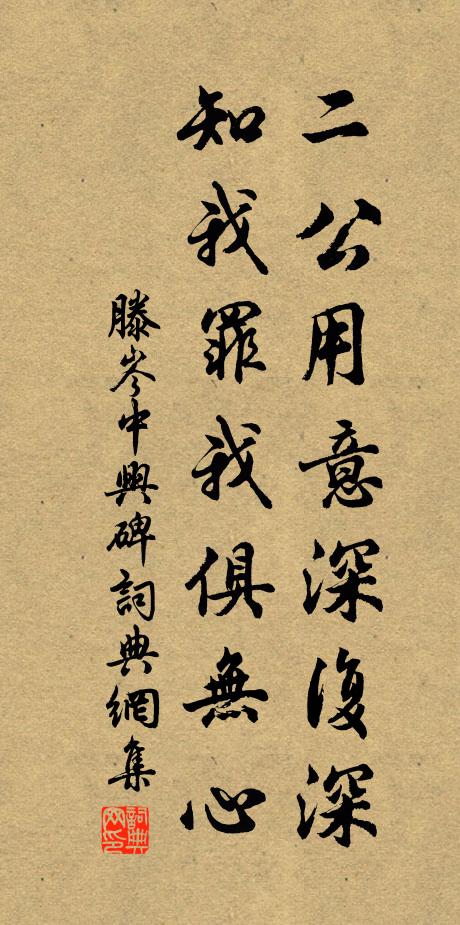 二公用意深復深
知我罪我俱無心
滕岑中興碑詞典網集
詞典網印